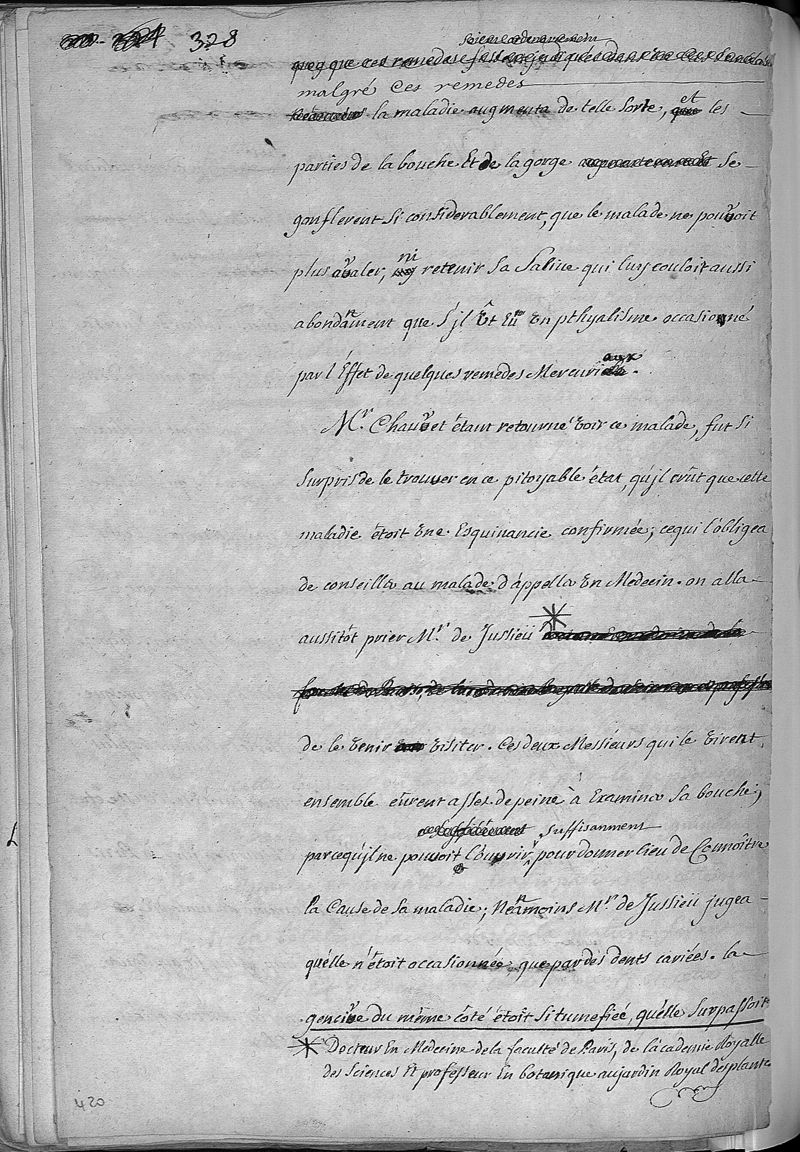 328
malgré ces remedes
la maladie augmenta de telle sorte, et les
parties de la bouche Et de la gorge se
gonflerent si considerablement, que le malade ne pouvoit
plus avaler, ni retenir sa Salive qui luy couloit aussi
abondanment que s'jl Eût Eu un pthyalisme occasionné
par l'Effet de quelques remedes Mercuriaux.
Mr. Chauvet étant retourné voir ce malade, fut si
surpris de le trouver en ce pitoyable état, qu'jl crût que cette
maladie étoit une Esquinancie confirmée; ce qui l'obligea
de conseiller au malade d'appeller un Medecin. on alla
aussitôt prier Mr. de Jussieu *
de le venir visiter. Ces deux Messieurs qui le virent
ensemble eûrent assés de peine à Examiner sa bouche;
suffisanment
parcequ'jl ne pouvoit l'ouvrir, pour donner lieu de Connoître
la Cause de sa maladie; Neanmoins Mr. de Jussieu jugea
qu'élle n'étoit occasionnée que par des dents cariées. la
gencive du même côté étoit si tumefieé, qu'élle surpassoit
* Docteur En Medecine de la faculté de Paris, de l'academie Royalle
des Sciences Et professeur En botanique au jardin Royal des plantes
420